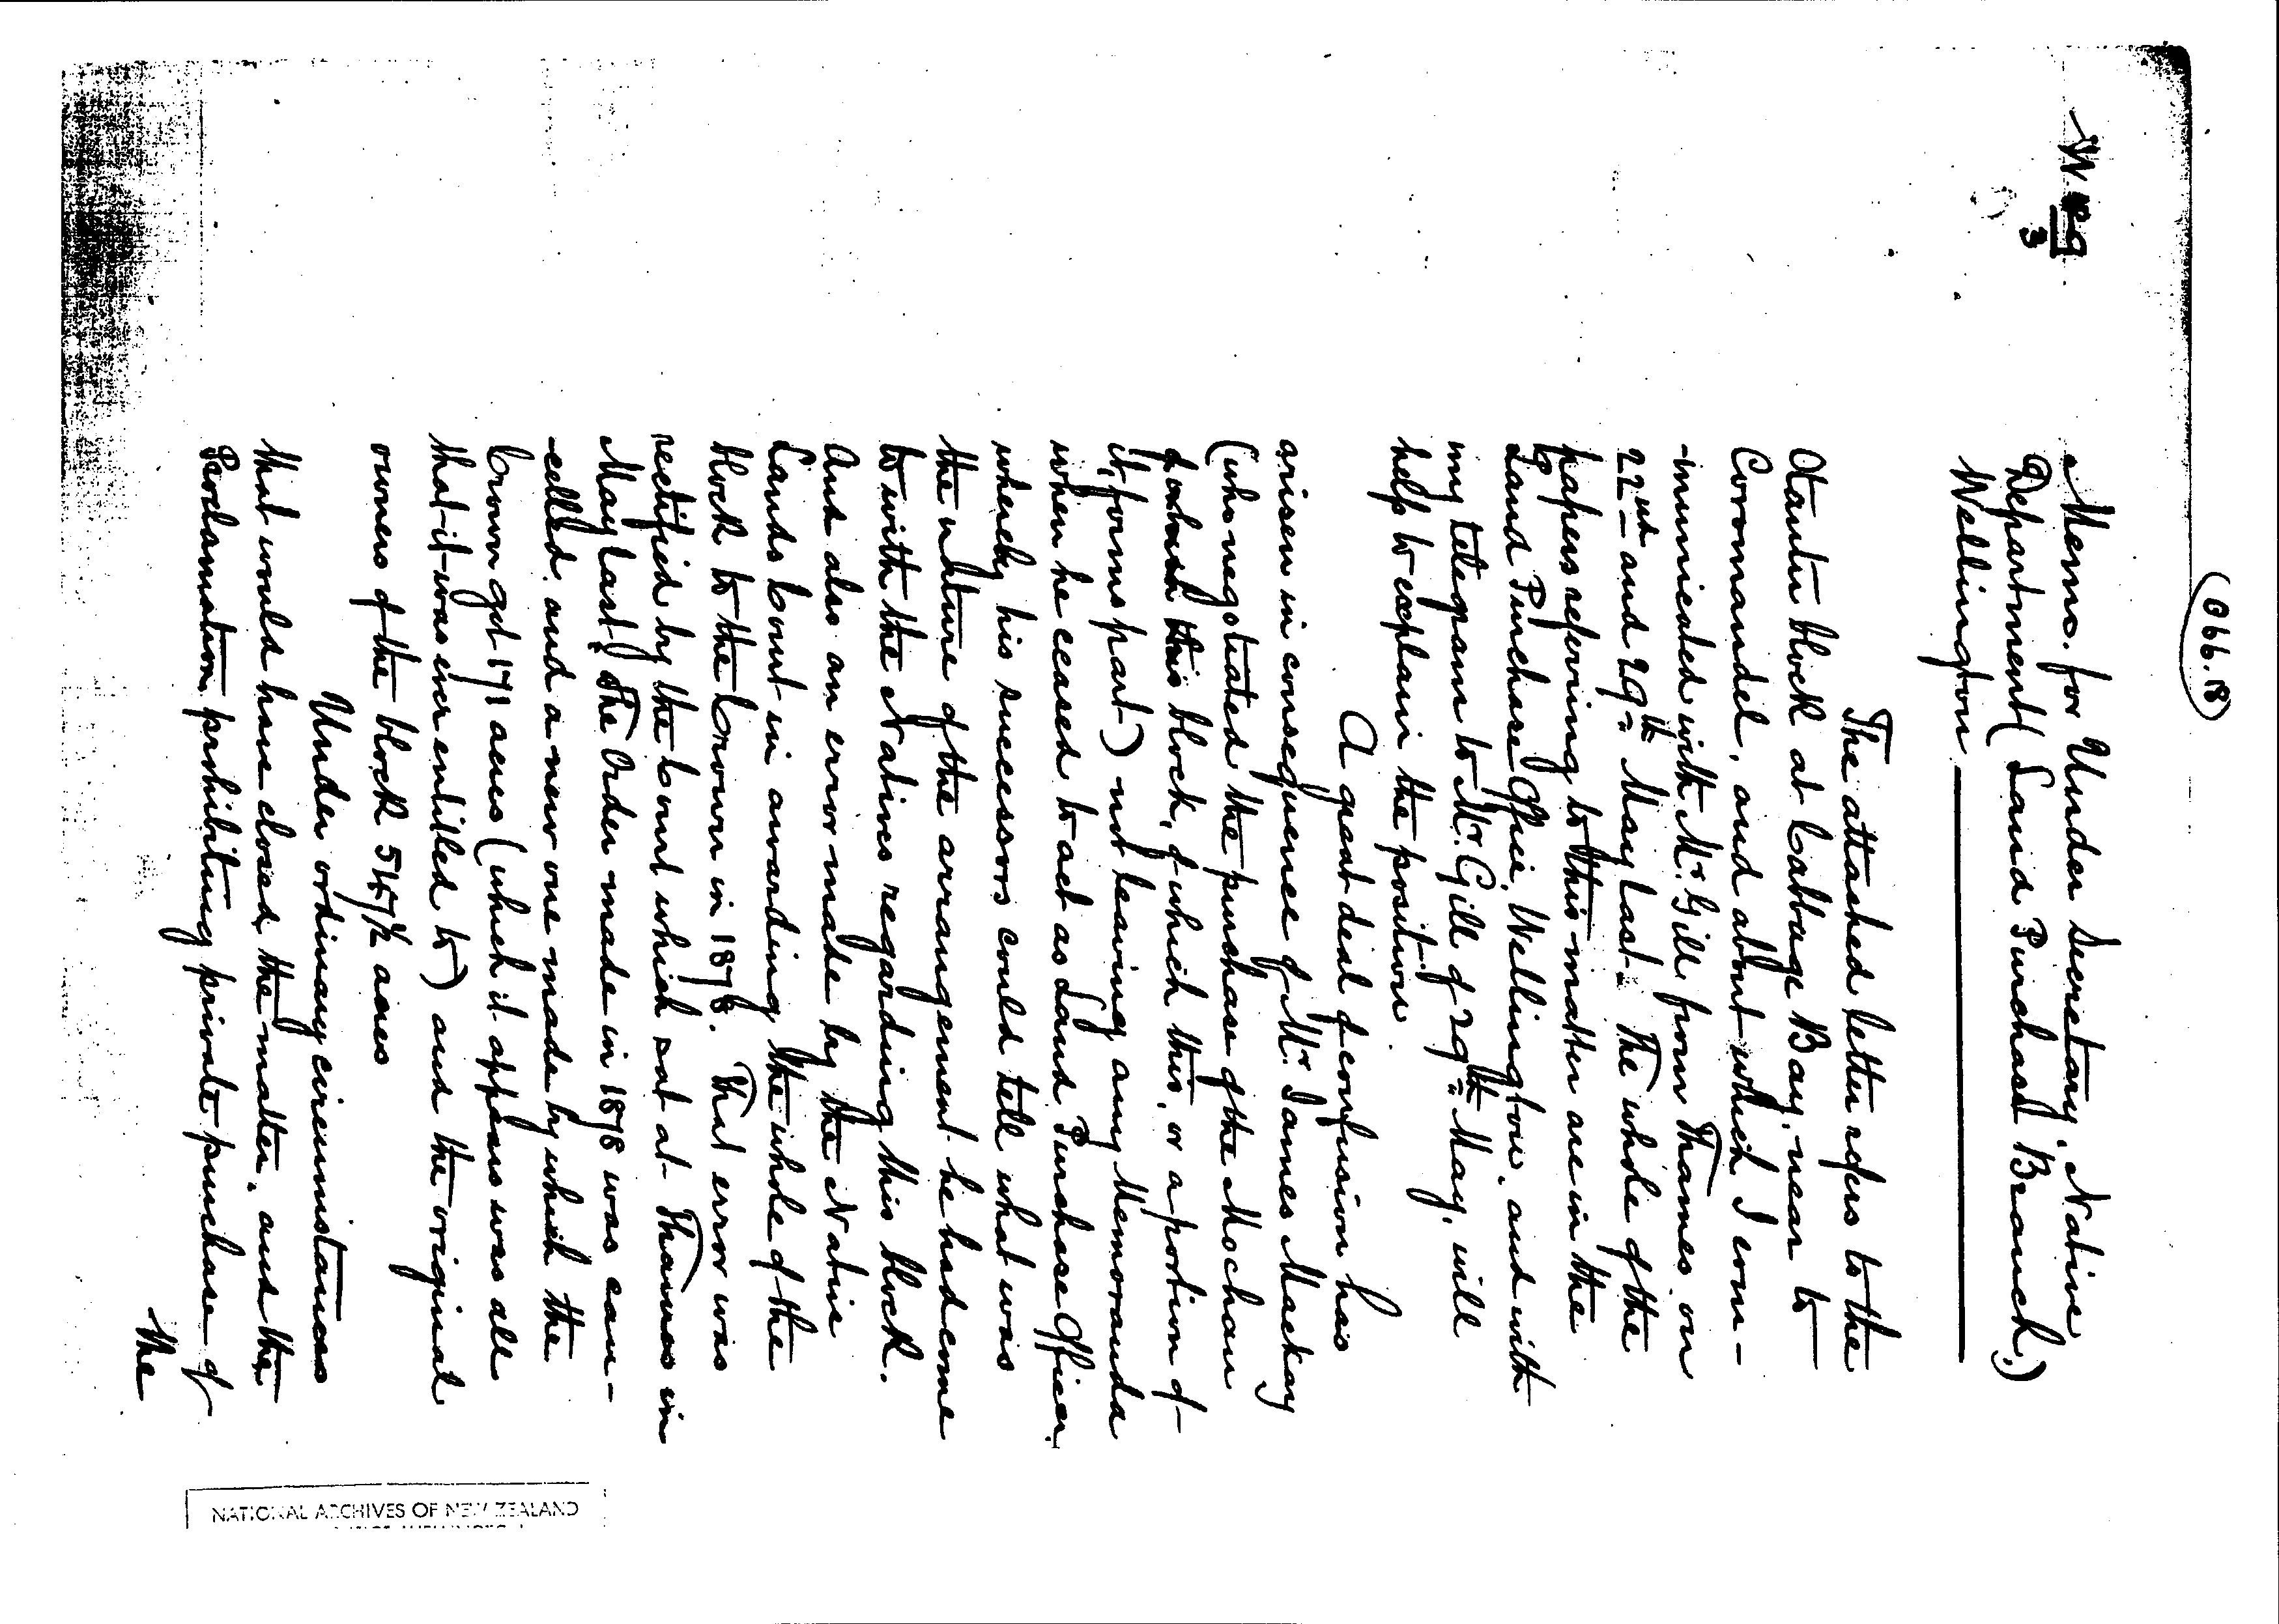 (066.18)
Memo. for Under Secretary, Native
Department (Land Purchase Branch,)
Wellington
The attached letter refers to the
Otautu block at Cabbage Bay, near to
Coromandel, and about which I com-
-municated with Mr. Gill from Thames on
22nd and 29th May last. The whole of the
papers referring to this matter are in the
Land Purchase Office, Wellington, and with
my telegram to Mr. Gill of 29th May, will
help to explain the position.
A great deal of confusion has
arisen in consequence of Mr. James Mackay
(who negotiated the purchase of the Moehau
block, of which this, or a portion of
it, forms part) not leaving any Memoranda
when he ceased to act as Land Purchase Officer.
whereby his successors could tell what was
the nature of the arrangement he had come
to with the Natives regarding this block.
And also an error made by the Native
Lands Court in awarding the whole of the
block to the Crown in 1878. That error was
rectified by the Court which sat at Thames in
May last. The Order made in 1878 was can-
-celled, and a new one made by which the
Crown got 171 acres (which it appears was all
that it was ever entitled to) and the original
owners of the block 547½ acres
Under ordinary circumstances
that would have closed the matter, and the
Proclamation prohibiting private purchase of
the
NATIONAL ARCHIVES OF NEW ZEALAND